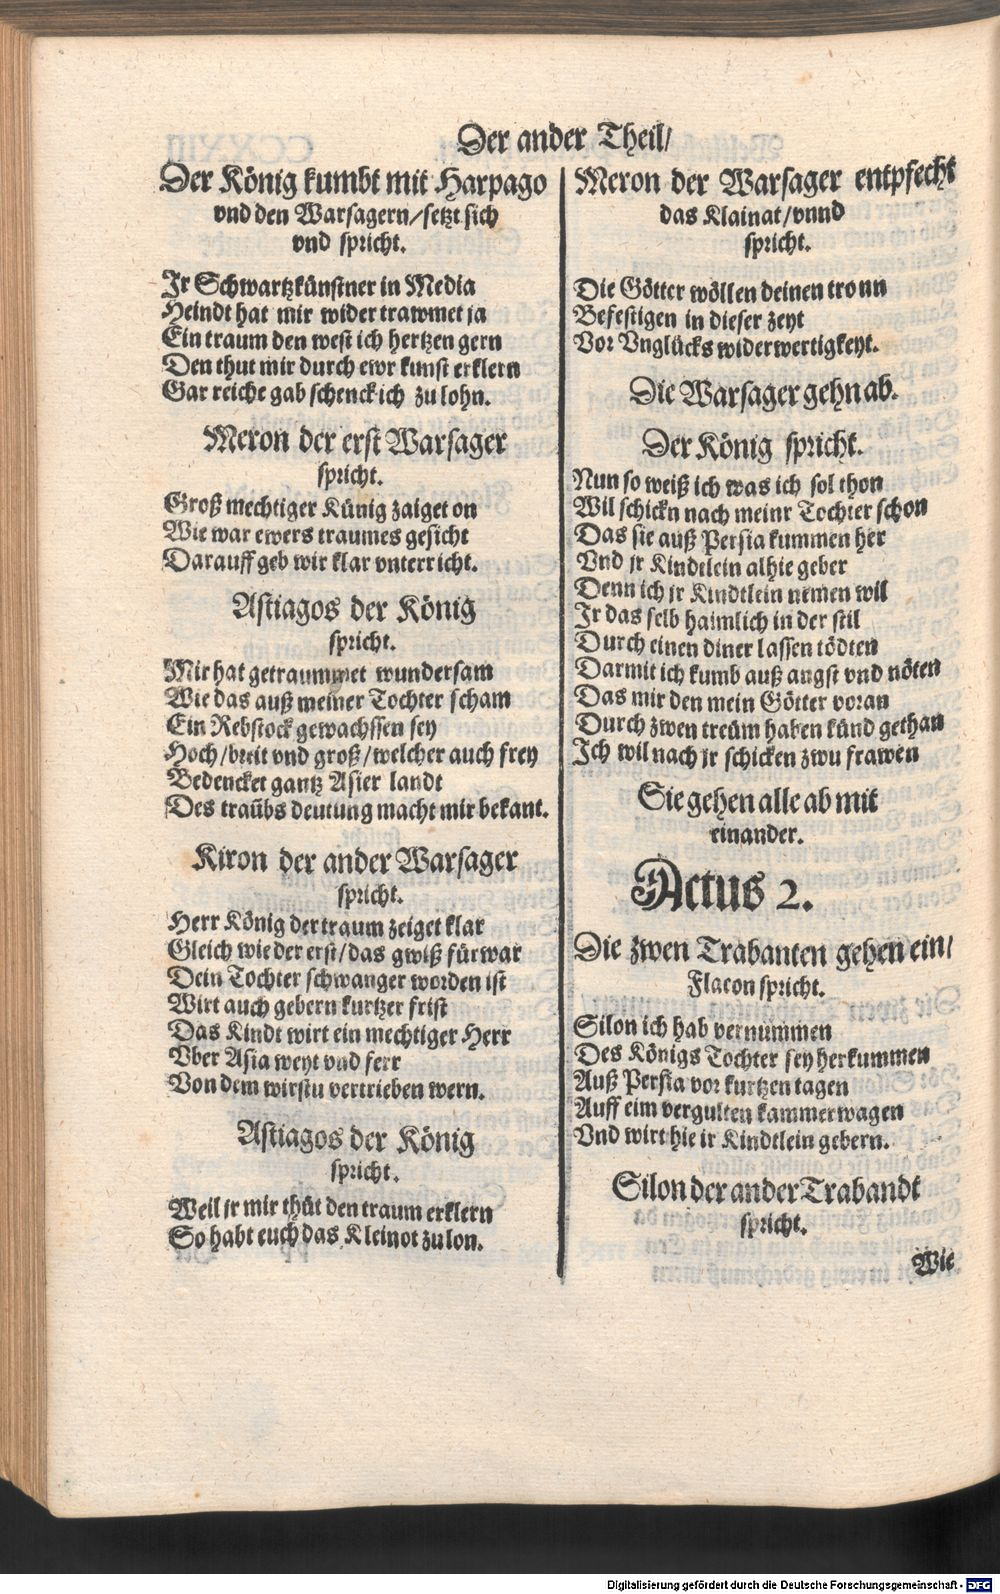 Der ander Theil/
Der König kumbt mit Harpago
vnd den Warsagern/setzt sich
vnd spricht.
Jr Schwartzkünstner in Media
Heindt hat mir wider trawmet ja
Ein traum den west ich hertzen gern
Den thut mir durch ewr kunst erklern
Gar reiche gab schenck ich zu lohn.
Meron der erst Warsager
spricht.
Groß mechtiger Künig zaiget on
Wie war ewers traumes gesicht
Darauff geb wir klar vnterricht.
Astiagos der König
spricht.
Mir hat getraummet wundersam
Wie das auß meiner Tochter scham
Ein Rebstock gewachssen sey
Hoch/breit vnd groß/welcher auch frey
Bedencket gantz Asier landt
Des traübs deutung macht mir bekant.
Kiron der ander Warsager
spricht.
Herr König der traum zeiget klar
Gleich wie der erst/das gwiß fürwar
Dein Tochter schwanger worden ist
Wirt auch gebern kurtzer frist
Das Kindt wirt ein mechtiger Herr
Vber Asia weyt vnd ferr
Von dem wirstu vertrieben wern.
Astiagos der König
spricht.
Weil jr mir thüt den traum erklern
So habt euch das Kleinot zu lon.
Meron der Warsager entpfecht
das Klainat/vnnd
spricht.
Die Götter wöllen deinen tronn
Befestigen in dieser zeyt
Vor Vnglücks widerwertigkeyt.
Die Warsager gehn ab.
Der König spricht.
Nun so weiß ich was ich sol thon
Wil schickn nach meinr Tochter schon
Das sie auß Persia kummen her
Vnd jr Kindtlein alhie geber
Denn ich jr Kindtlein nemen wil
Jr das selb haimlich in der stil
Durch einen diner lassen tödten
Darmit ich kumb auß angst vnd nöten
Das mir den mein Götter voran
Durch zwen treüm haben künd gethan
Ich wil nach jr schicken zwu frawen
Sie gehen alle ab mit
einander.
Actus 2.
Die zwen Trabanten gehen ein/
Flacon spricht.
Silon ich hab vernummen
Des Königs Tochter sey herkummen
Auß Persia vor kurtzen tagen
Auff eim vergulten kammerwagen
Vnd wirt hie ir Kindtlein gebern.
Silon der ander Trabandt
spricht.
Wie
Digitalisierung gefördert durch die Deutsche Forschungsgemeinschaft - DFG